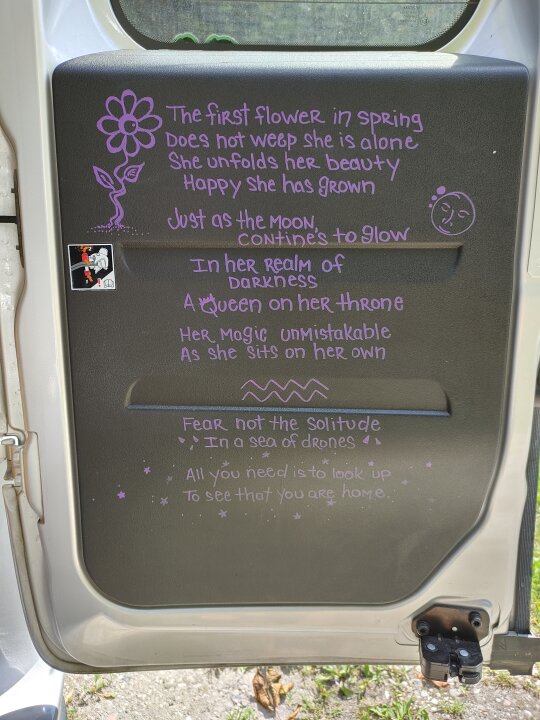 The first flower in spring
Does not weep she is alone
She unfolds her beauty
Happy she has grown
Just as the moon,
contines to glow
In her realm of
darkness
A Queen on her throne
Her magic unmistakable
As she sits on her own
Fear not the solitude
In a sea of drones
All you need is to look up
To see that you are home.